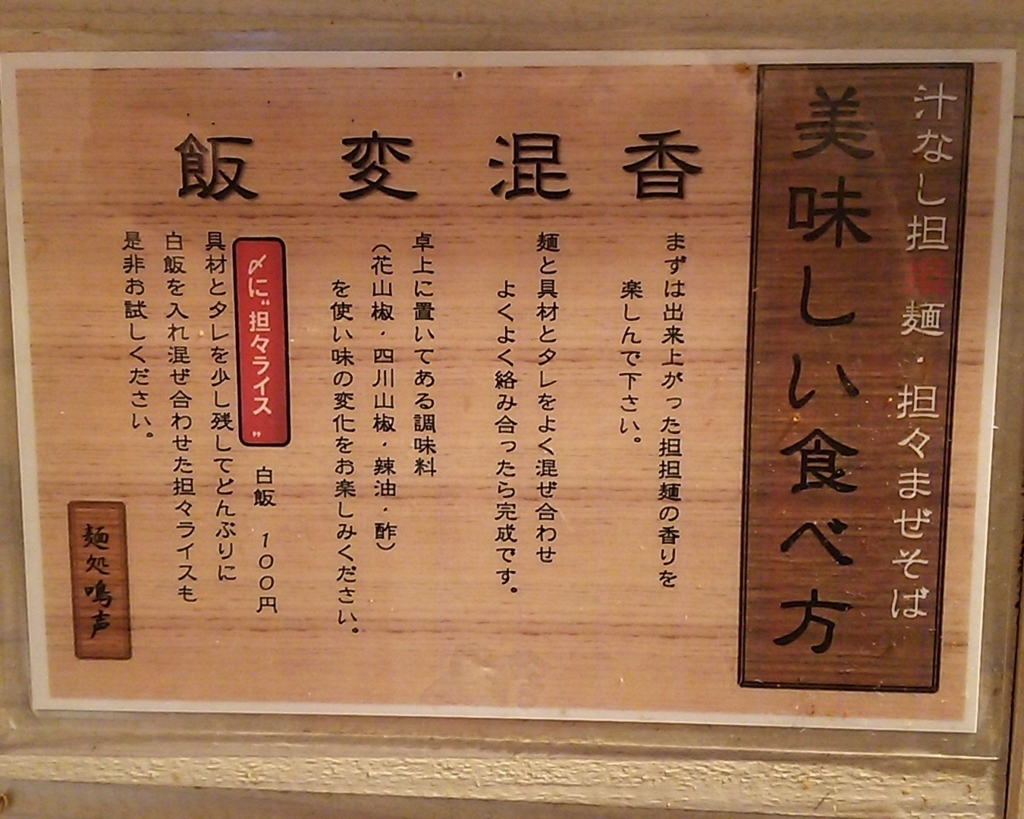 汁なし担担麺・担々まぜそば
美味しい食べ方
香
まずは出来上がった担担麺の香りを
楽しんで下さい。
混
麺と具材とタレをよく混ぜ合わせ
よくよく絡み合ったら完成です。
変
卓上に置いてある調味料
（花山椒・四川山椒・辣油・酢）
を使い味の変化をお楽しみください。
飯
〆に"担々ライス" 白飯 100円
具材とタレを少し残してどんぶりに
白飯を入れ混ぜ合わせた担々ライスも
是非お試しください。
麺処鳴声